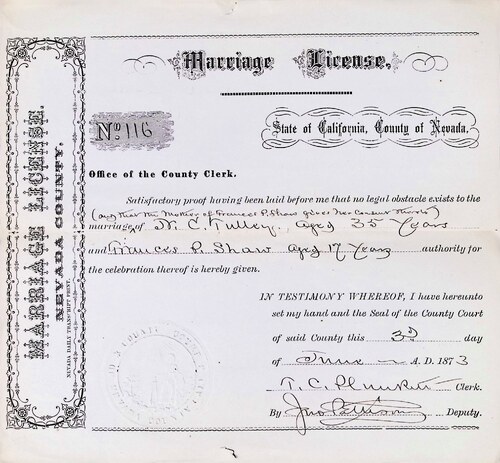 MARRIAGE LICENSE.
NEVADA COUNTY.
NEVADA DAILY TRANSCRIPT PRINT.
Marriage License.
No 116
State of California, County of Nevada.
Office of the County Clerk.
Satisfactory proof having been laid before me that no legal obstacle exists to the
(and that the Mother of Frances P. Shaw gives her consent thereto)
marriage of W. C. Tulley, aged 35 Years
and Frances P. Shaw aged 17 Years authority for
the celebration thereof is hereby given.
IN TESTIMONY WHEREOF, I have hereunto
set my hand and the Seal of the County Court
of said County this 3d day
of June A. D. 1873
T. C. Plunkett Clerk.
By Jno Pattison Deputy.